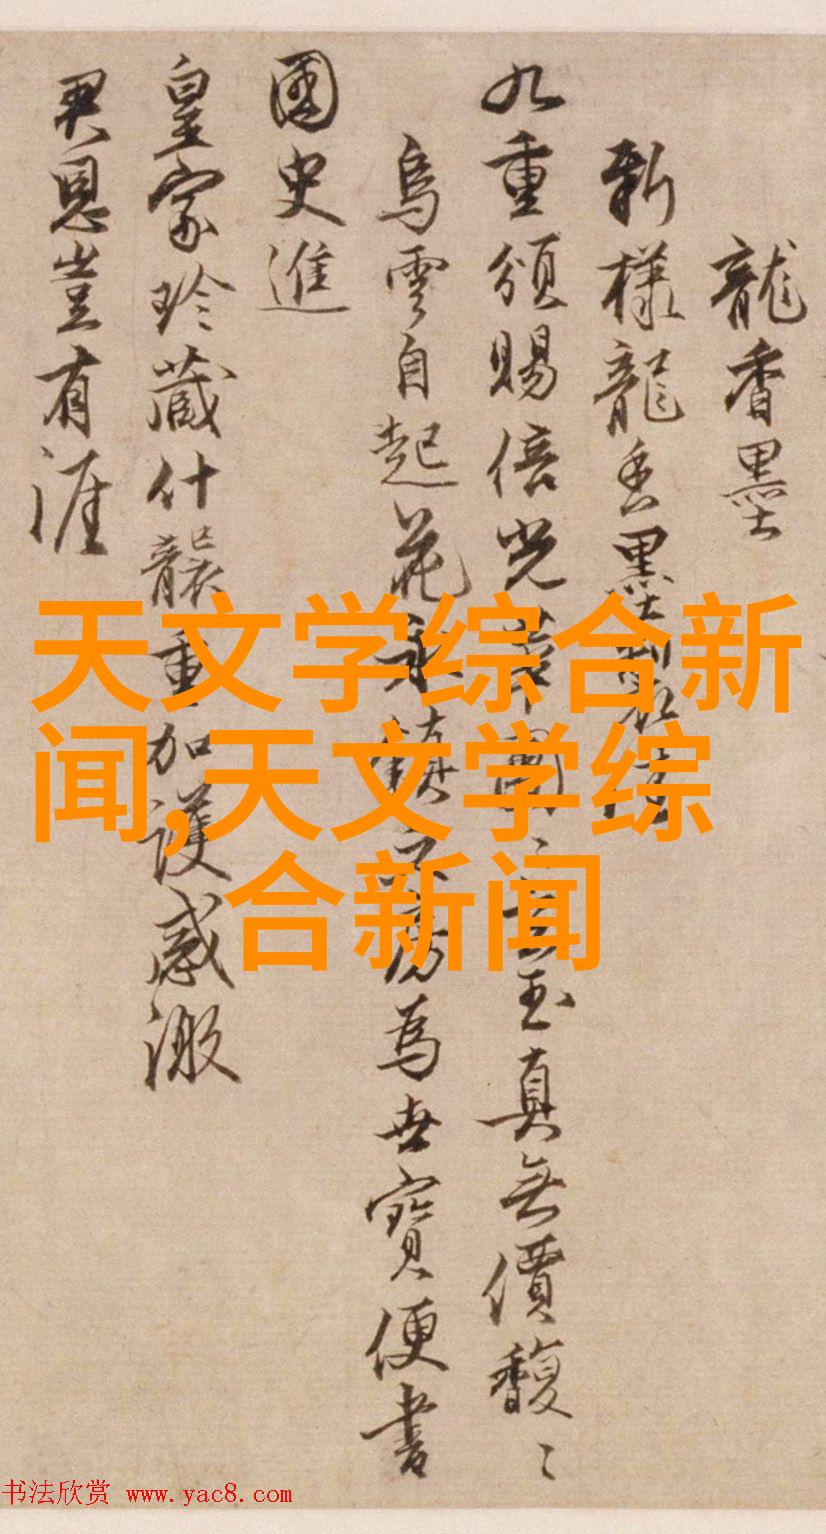 龍香墨
新樣龍香墨
九重頒賜倍光華團〻玉真無價馥〻
烏雲自起花永鎮房為世寶便書
國史進
皇家珍藏什襲重加護感激
君恩豈有涯
天文学综合新
闻,天文学综
合新闻
书法欣赏 www.yac8.com